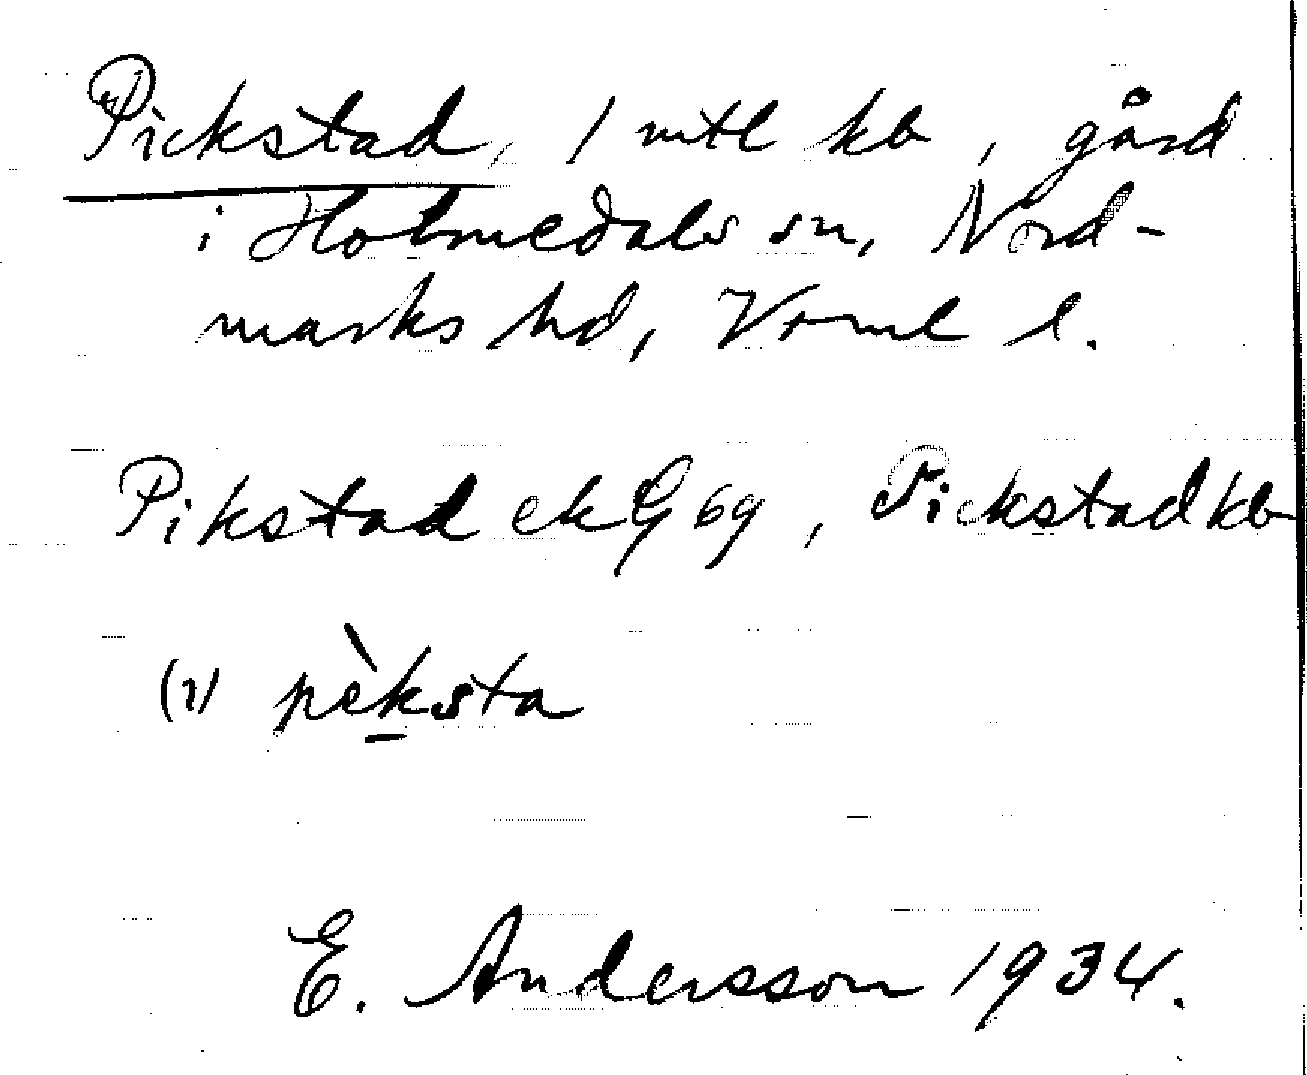 Pickstad, 1 mtl kb, gård
i Holmedals sn, Nord-
marks hd, Värml l.
Pikstad ek G 69, Pickstad kb
(1) pèksta
E. Andersson 1934.